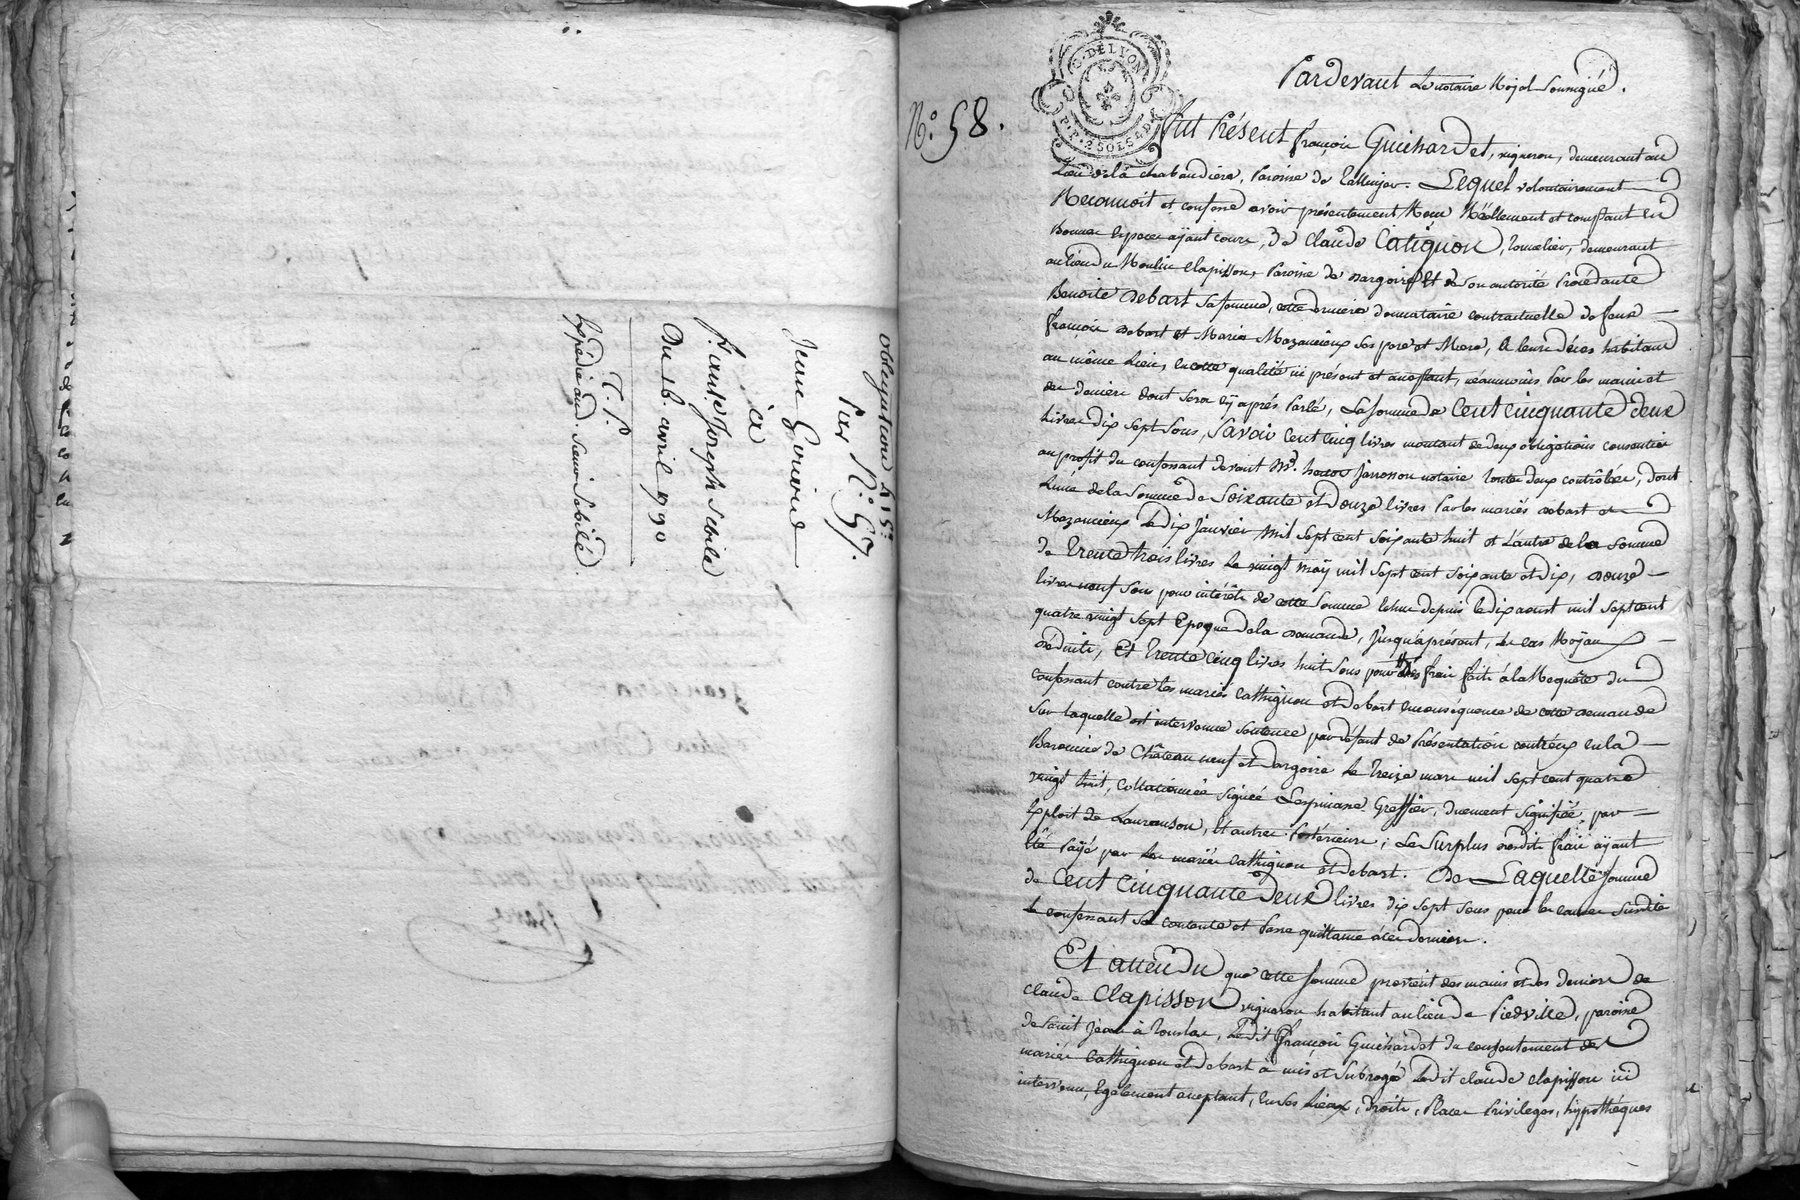 obligation L 157
Pier N.° 57.
Jean Goirand
à
S.r anne Joseph Sebile
Du 16. avril 1790
T. P.
Expédié aud. Sieur Sebille
G. DE LYON
P.P. 2 SOLS 4 D.
N.° 58.
Pardevant Le notaire Royal Soussigné.
fut Présent françois Guichardet, vigneron, demeurant au
Lieu de la chabaudiere, Paroisse de . Lequel volontairement
Reconnoit et confesse avoir présentement Recu Réellement et comptant en
Bonnes Especes aÿant cours, De Claude Catignon, tonnelier, demeurant
au lieu du Moulin Clapisson, Paroisse de dargoire, Et de Son autorité Procédante
Benoite Debart Sa femme, cette derniere donnataire contractuelle de feux
françois Debart et Marie Mazancieux Ses pere et Mere, à leurs décès habitans
au même Lieu, en cette qualité ici présent et acceptant, néanmoins Par les mains et
des deniers dont Sera cÿ aprés Parlé, La Somme de Cent cinquante deux
Livres Dix Sept Sous, Savoir Cent Cinq livres montant de deux obligations consenties
au profit du confessant devant M.e Jarrosson notaire toutes deux contrôlées, dont
L'une de la Somme de Soixante et Douze livres Par les mariés Debart et
Mazancieux Le dix Janvier Mil Sept cent Soixante huit et L'autre de la Somme
de Trente trois livres Le vingt Maÿ mil Sept cent Soixante et Dix, Douze
livres neuf Sous pour intérêts de cette Somme Echus depuis le dix aoust mil Sept cent
quatre vingt Sept Epoque de la Demande, Jusqu'apresent, Les cas Roÿaux
déduits, Et Trente Cinq livres huit Sous pour frais faits à la Requête du
confessant contre les mariés Catthignon et Debart en conséquence de cette demande
Sur laquelle est intervenue Sentence par défaut de Présentation contr'eux en la
Baronnie de Château neuf et Dargoire Le Treize mars mil Sept cent quatre
vingt huit, Collationnée Signée Lespinasse Greffier, duement Signifiée, par
Exploit de Laurenson, Et autres Postérieurs; Le Surplus desdits frais aÿant
été Païé par Les mariés Catthignon et debart. De Laquelle Somme
de Cent cinquante Deux livres dix Sept Sous pour les causes Susdites
Le confessant Se contente et Passe quittance à ces derniers.
Et attendu que cette Somme provient des mains et des deniers de
Claude Clapisson vigneron habitant au lieu de Piedville, paroisse
de Saint Jean à Touslas, Ledit françois Guichardet du consentement des
mariés Catthignon et Debart à mis et Subrogé Ledit Claude Clapisson ici
intervenu, Egalement acceptant, En Ses Lieux, Droits, Places Privileges, hÿpothéques